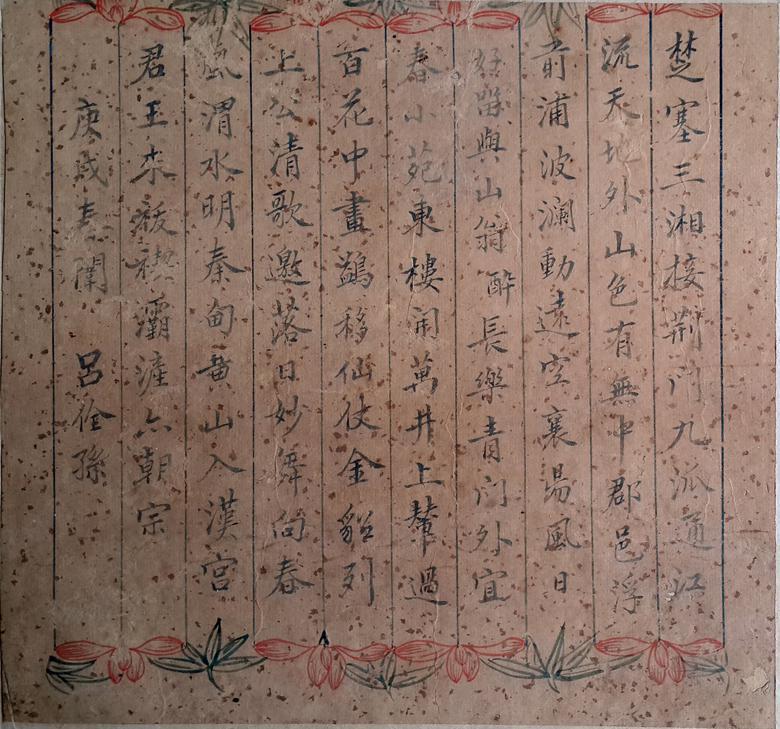 楚塞三湘接荆門九派通江
流天地外山色有無中郡邑浮
前浦波瀾動遠空襄陽風日
好留與山翁醉長樂青門外宜
春小苑東樓開萬井上輦過
百花中畫鷁移仙仗金貂列
上公清歌邀落日妙舞向春
風渭水明秦甸黄山入漢宫
君王来祓禊灞滻亦朝宗
庚戌春閏 吕佺孫